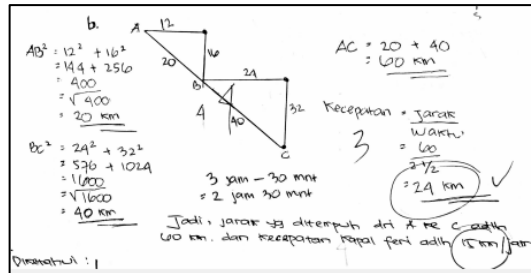 b.
A 12
16
20
B 24
4
40
32
C
AB² = 12² + 16²
= 144 + 256
= 400
= √400
= 20 km
BC² = 24² + 32²
= 576 + 1024
= 1600
= √1600
= 40 km
3 jam - 30 mnt
= 2 jam 30 mnt
AC = 20 + 40
= 60 km
Kecepatan = Jarak
Waktu
3
= 60
2 1/2
= 24 km
Jadi, jarak yg ditempuh dri A ke C adlh
60 km. dan kecepatan kapal feri adlh 15 km/jam
Diketahui :